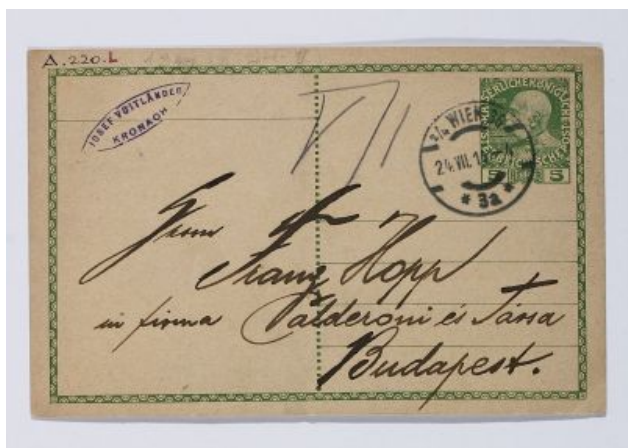 A.220.L
JOSEF VOITLÄNDER
KRONACH
5 5
WIEN
24.VII.1
* 3a *
Herrn
Franz Hopp
in firma Calderoni és Társa
Budapest.